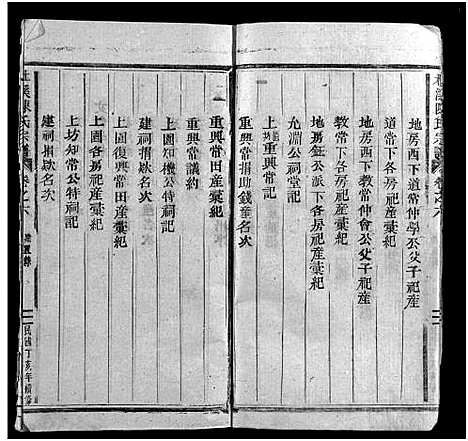 地房西下道常仲學公父子祀產
道常下各房祀產彙紀
地房西下教常仲會公父子祀產
教常下各房祀產彙紀
地房鈺公派下各房祀產彙紀
允淵公祠堂記
上園重興常記
重興常捐助錢筆名次
重興常田產彙紀
重興常議約
上園知機公特祠記
建祠捐欵名次
上園復興常田產彙紀
上園各房祀產彙紀
上坊知常公特祠記
建祠捐欵名次
陳氏宗譜
卷之六
民國丁亥年續修